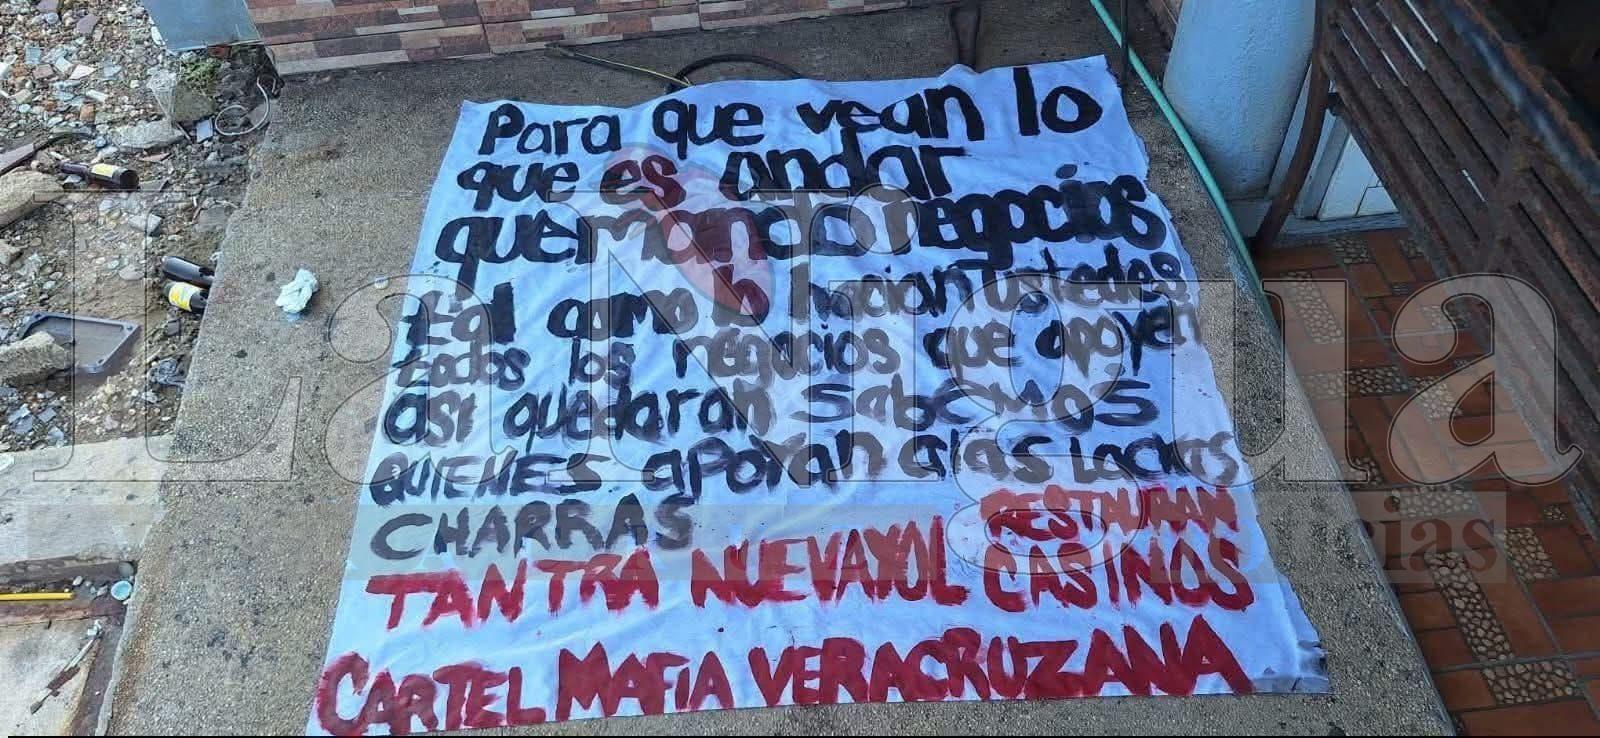 Para que vean lo
que es andar
quemando negocios
tal como lo hacian ustedes
todos los negocios que apoyen
asi quedaran SabEMOS
QUIENES aPOYAN alas LacRAS
CHARRAS
RESTAURAN
TANTRA NUEVAYOL CASINOS
CARTEL MAFIA VERACRUZANA
La Nigua
Noticias